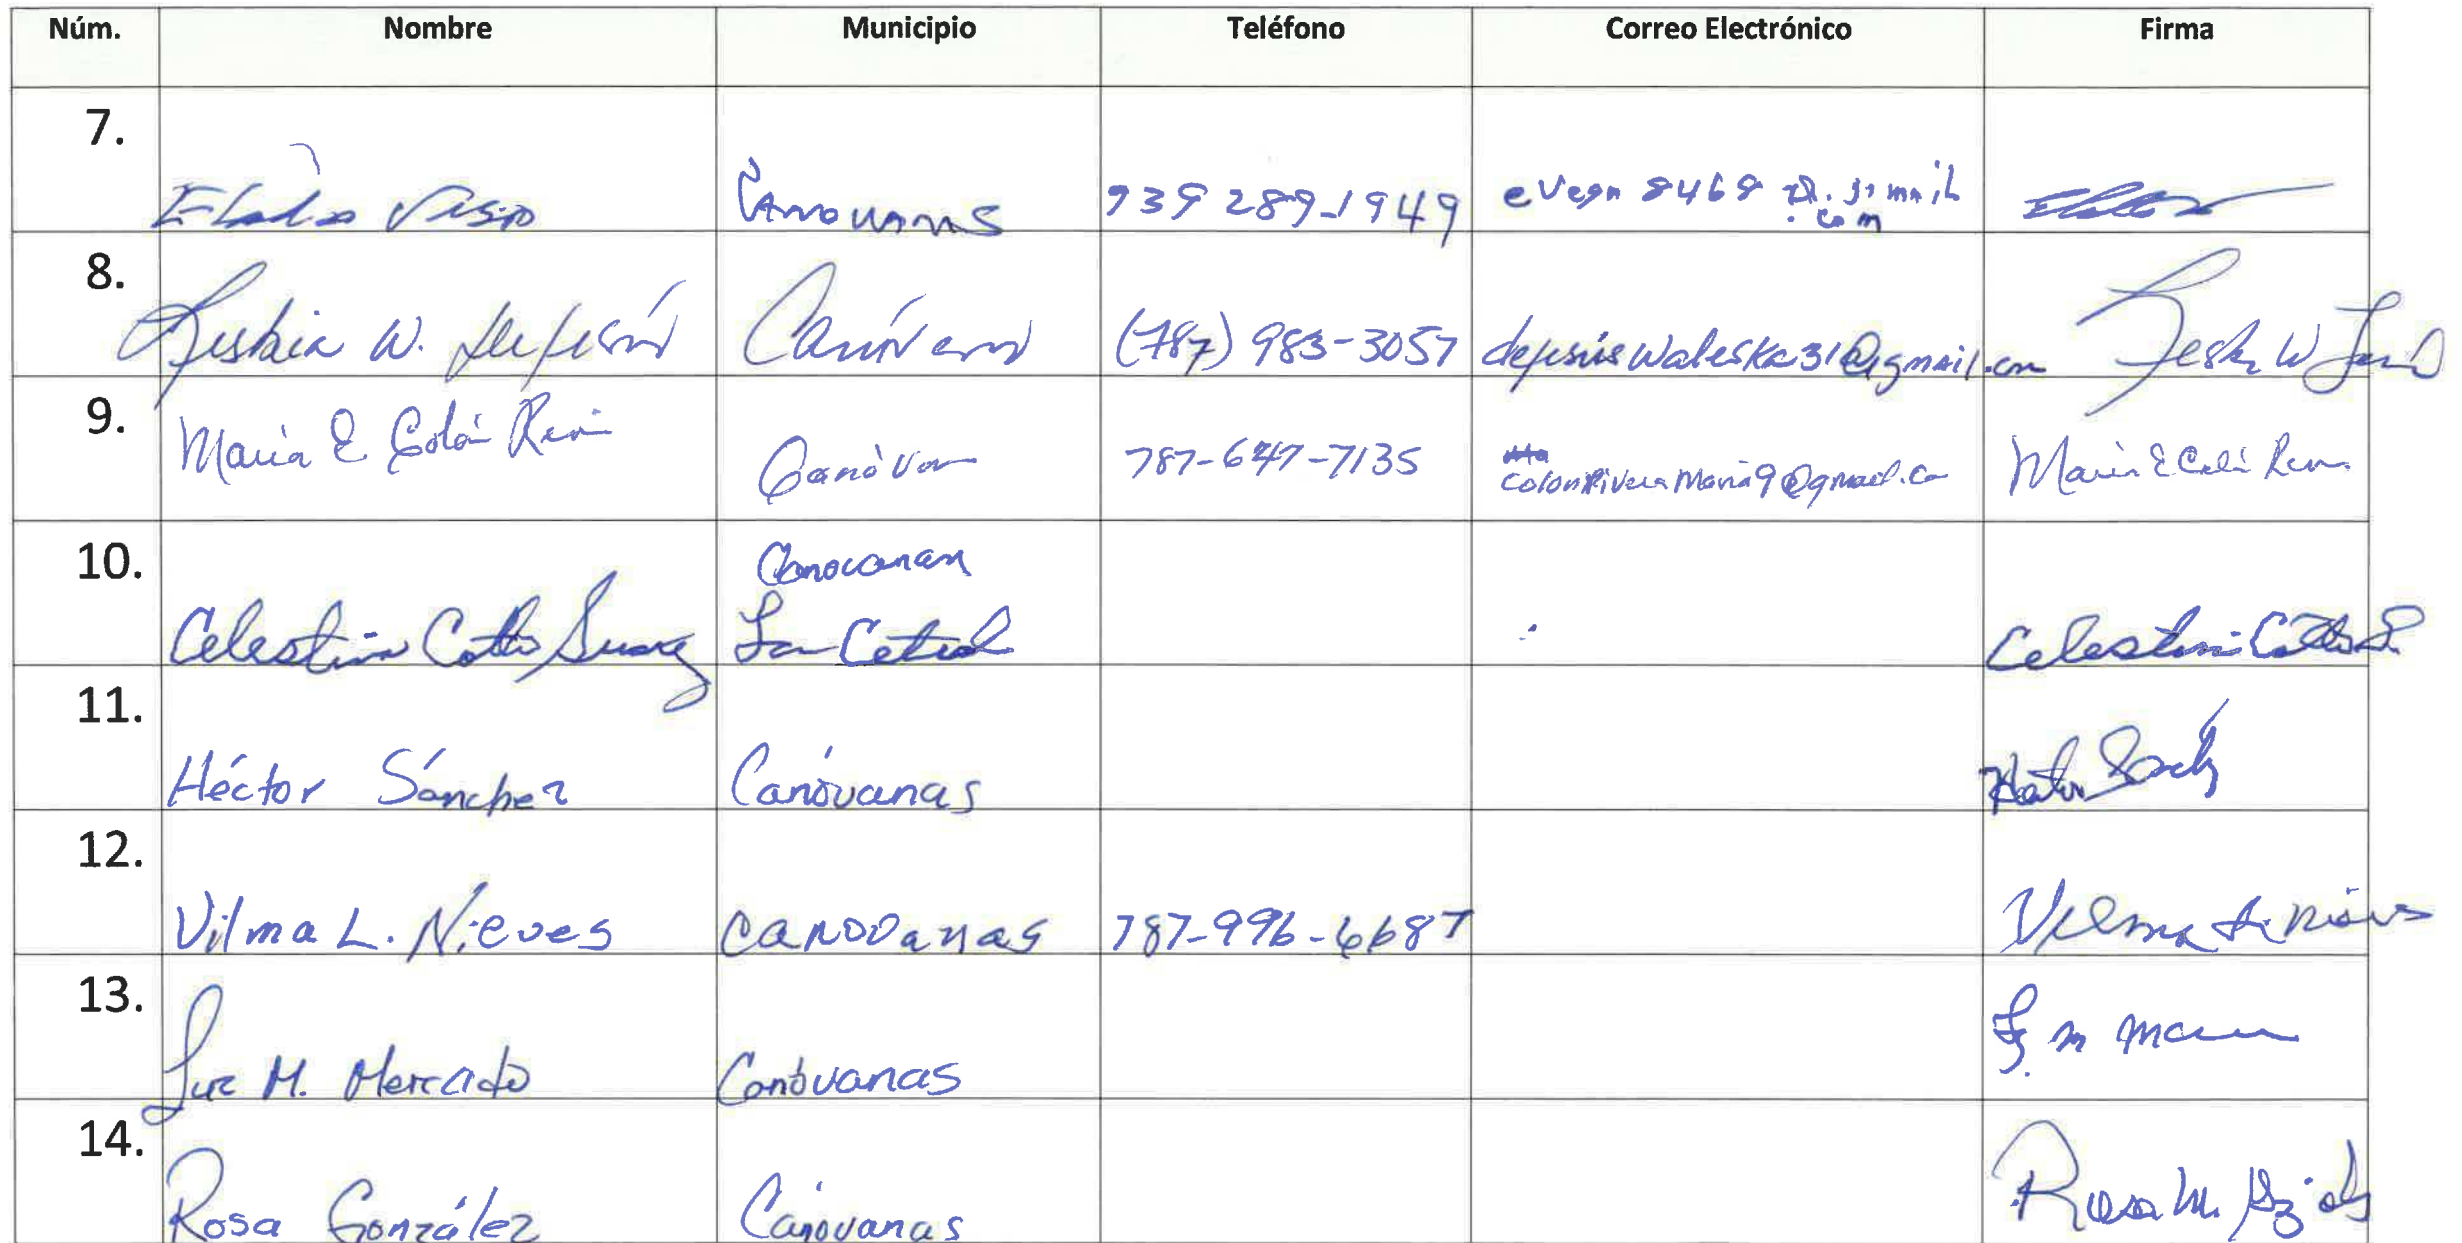 Núm. Nombre Municipio Teléfono Correo Electrónico Firma
7. Vega Canovanas 939 289-1949 evega 8468
.com
8. W. De Jesús Canóvanas (787) 983-3057 dejesúswaleska31@gmail.com
9. María E Colón Canóvanas 787-647-7135 colonRiveraMaria9@gmail.co María E
10. Canovanas
Celestina Cotto Suarez La Central Celestina Cotto S.
11. Héctor Sánchez Canóvanas
12. Vilma L. Nieves CANOVanas 787-996-6687 Vilma L. Nieves
13. Luz M. Mercado Canóvanas
14. Rosa González Canóvanas Rosa M.